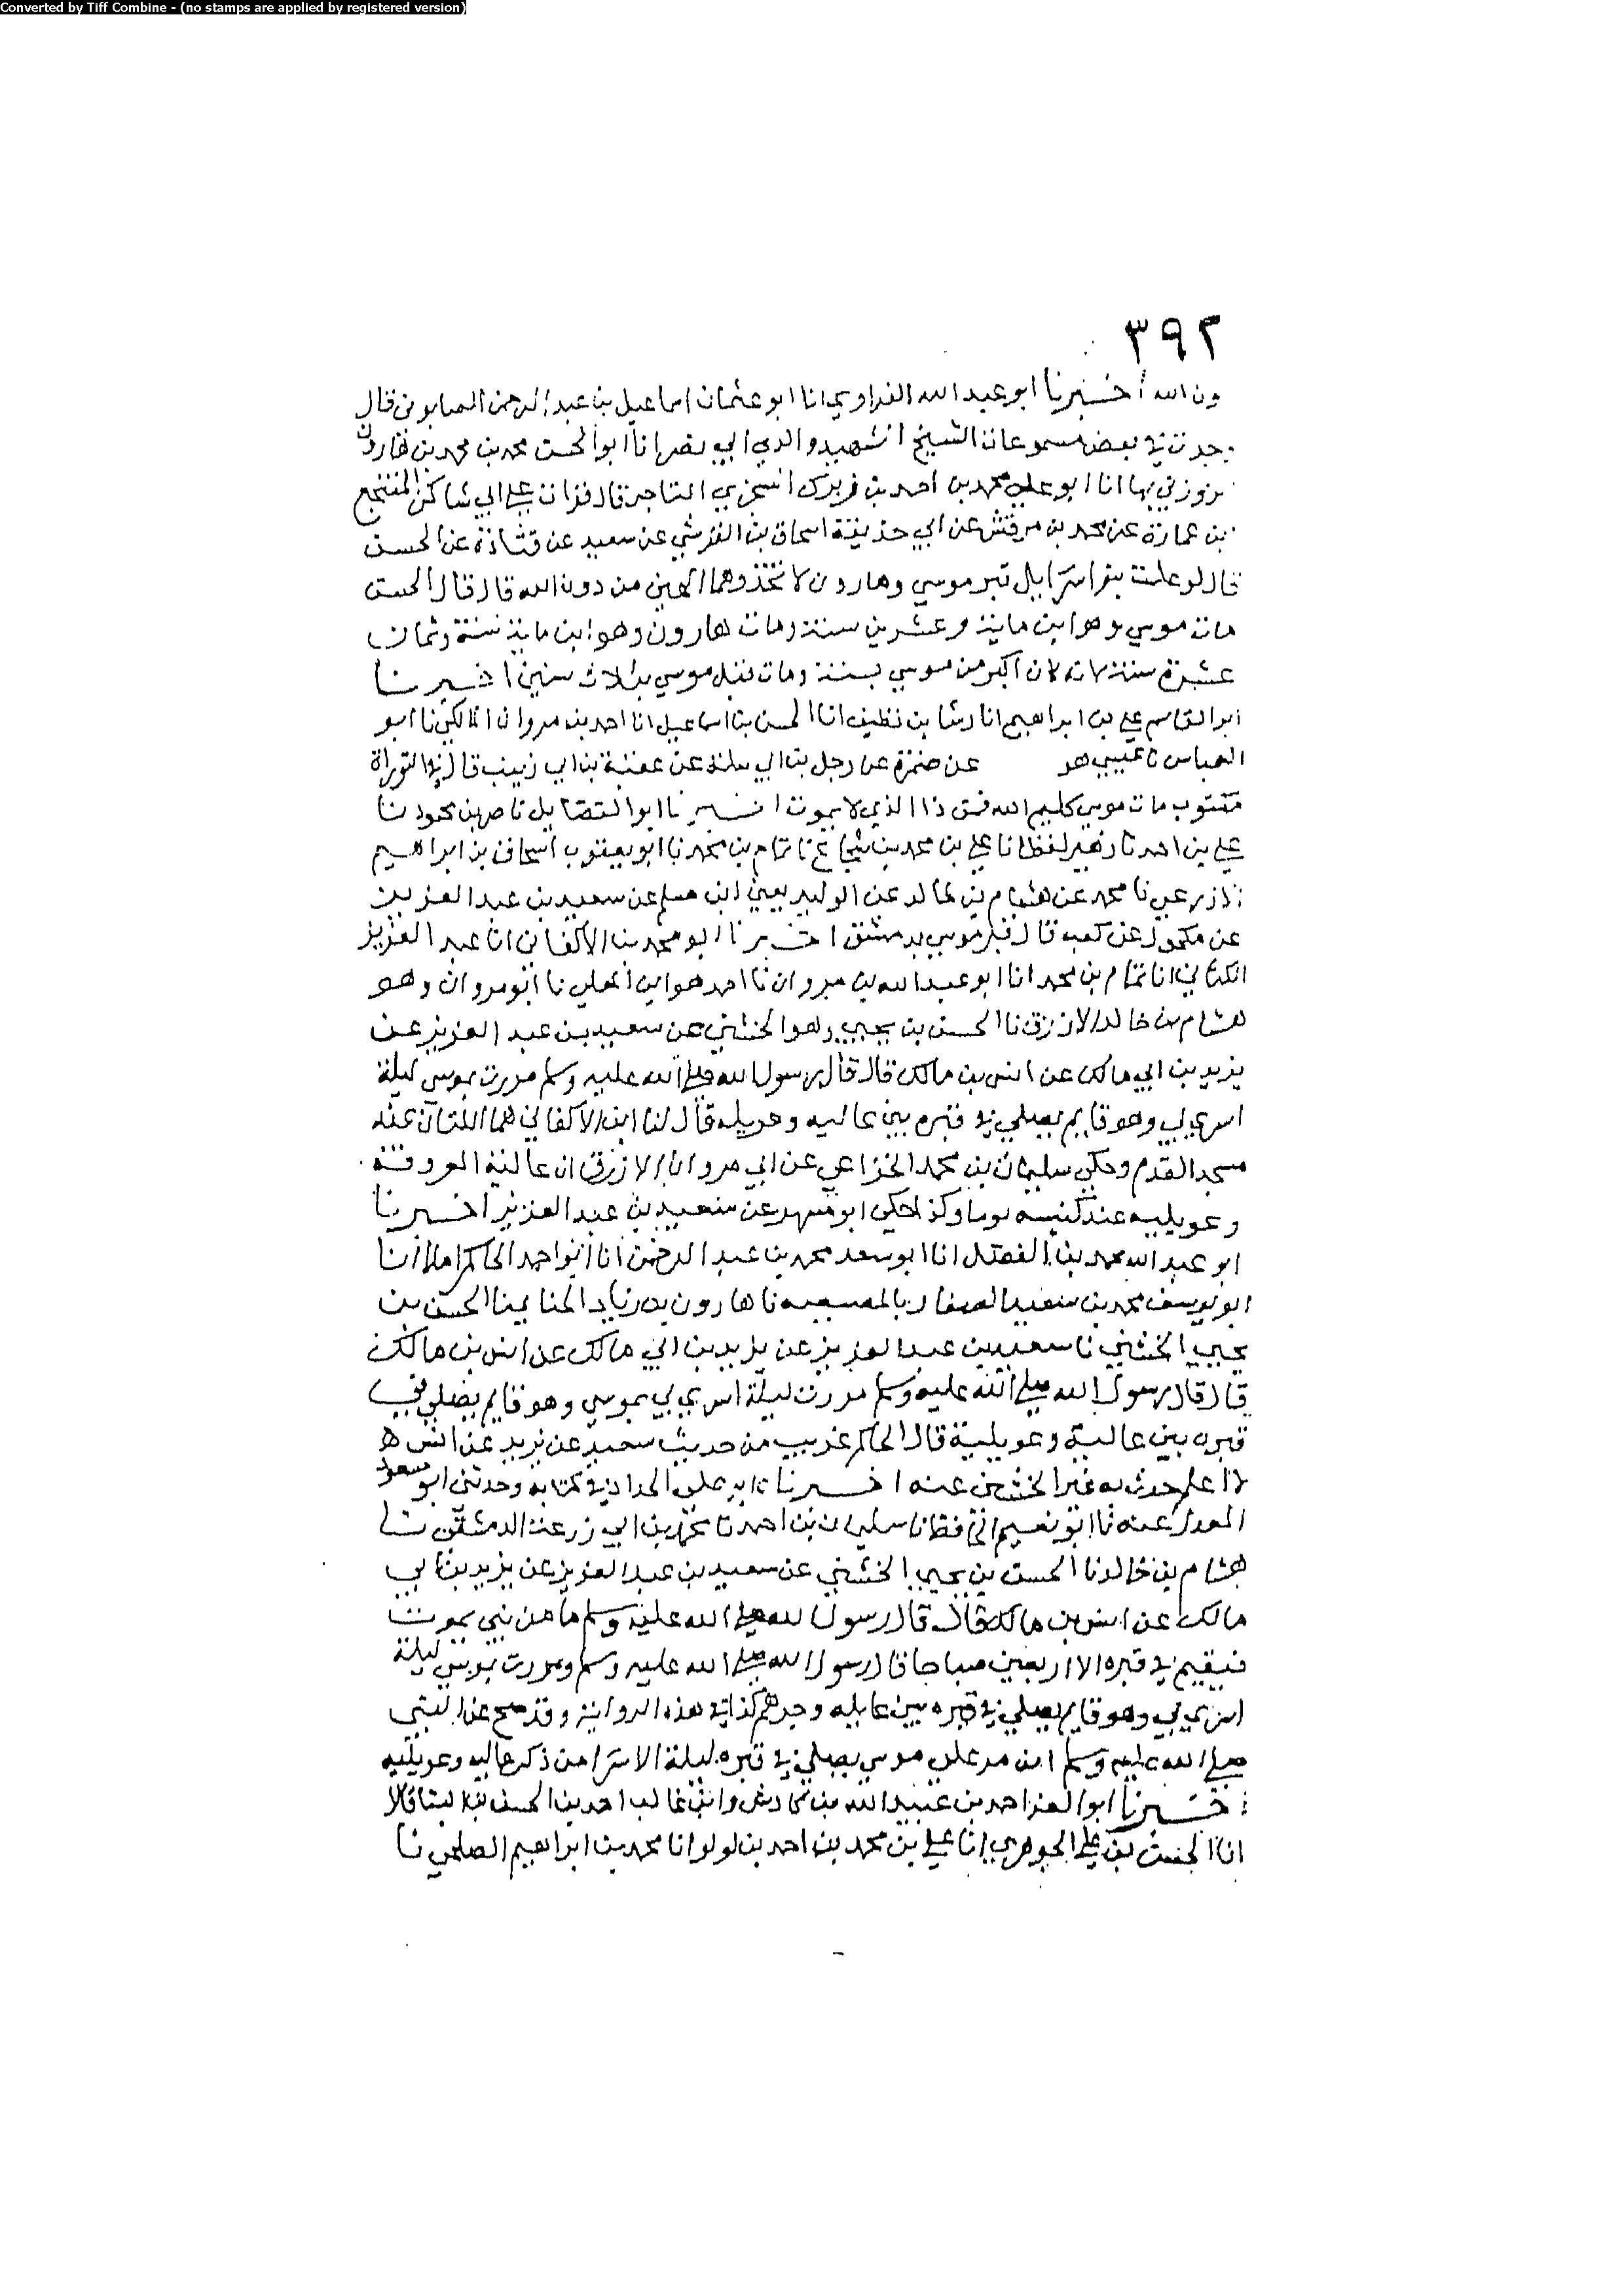 Converted by Tiff Combine - (no stamps are applied by registered version)
٣٩٢
ون الله أخبرنا ابو عبد الله الفراوي انا ابو عثمان اسماعيل بن عبد الرحمن الصابوني قال
وجدت في بعض مسموعات الشيخ الشهيد والدي ابي نصر انا ابو الحسن محمد بن محمد بن هارون
الزوزني بها انا ابو علي محمد بن احمد بن السجزي التاجر قال قرات علي ابي شاكر المنتجع
بن عمارة عن محمد بن عن ابي حذيفة اسحاق بن القرشي عن سعيد عن قتادة عن الحسن
قال لو علمت بنو اسرايل قبر موسي وهارون لاتخذوهما الهين من دون الله قال قال الحسن
مات موسي وهو ابن ماية وعشرين سنة ومات هارون وهو ابن ماية سنة وثمان
عشرة سنة لانه كان اكبر من موسي بسنة ومات قبل موسي بثلاث سنين اخبرنا
ابو القاسم علي بن ابراهيم انا رشا بن نظيف انا الحسن بن اسماعيل انا احمد بن مروان المالكي نا ابو
العباس نا عيسي هو عن ضمرة عن رجل بن ابي سلمة عن عقبة بن ابي زينب قال في التوراة
مكتوب مات موسي كليم الله فمن ذا الذي لا يموت اخبرنا ابو الفضايل ناصر بن محمود نا
علي بن احمد نا زهير لفظا نا علي بن محمد بن شجاع نا تمام بن محمد نا ابو يعقوب اسحاق بن ابراهيم
الاذرعي نا محمد عن هشام بن خالد عن الوليد يعني ابن مسلم عن سعيد بن عبد العزيز
عن مكحول عن كعب قال قبر موسي بدمشق اخبرنا ابو محمد بن الاكفاني انا عبد العزيز
الكتاني انا تمام بن محمد انا ابو عبد الله بن مروان نا احمد هو ابن المعلي نا ابو مروان وهو
هشام بن خالد الازرق نا الحسن بن يحيي وهو الخشني عن سعيد بن عبد العزيز عن
يزيد بن ابي مالك عن انس بن مالك قال قال رسول الله صلي الله عليه وسلم مررت بموسي ليلة
اسري بي وهو قايم يصلي في قبره بين عاليه وعويليه قال لنا ابن الاكفاني هما اللتان عند
مسجد القدم وحكي سليمان بن محمد الخزاعي عن ابي مروان الازرق ان عالية العروفة
وعويليه عند كنيسه توما وكذا حكي ابو مسهر عن سعيد بن عبد العزيز اخبرنا
ابو عبد الله محمد بن الفضل انا ابو سعد محمد بن عبد الرحمن انا ابو احمد الحاكم املا انا
ابو يوسف محمد بن سعيد الصفار بالمصيصه نا هارون بن زياد الحنايي نا الحسن بن
يحيي الخشني نا سعيد بن عبد العزيز عن يزيد بن ابي مالك عن انس بن مالك
قال قال رسول الله صلي الله عليه وسلم مررت ليلة اسري بي بموسي وهو قايم يصلي في
قبره بين عالية وعويلية قال الحاكم غريب من حديث سعيد عن يزيد عن انس ه
لا اعلم حدث به غير الخشني عنه اخبرنا ابو علي الحداد في كتابه وحدثني ابو مسعود
المعدل عنه نا ابو نعيم الحافظ نا سليمان بن احمد نا محمد بن ابي زرعة الدمشقي نا
هشام بن خالد نا الحسن بن يحيي الخشني عن سعيد بن عبد العزيز عن يزيد بن ابي
مالك عن انس بن مالك قال قال رسول الله صلي الله عليه وسلم ما من نبي يموت
فيقيم في قبره الا اربعين صباحا قال رسول الله صلي الله عليه وسلم ومررت بموسي ليلة
اسري بي وهو قايم يصلي في قبره بين عايله كذا في هذه الرواية وقد صح عن النبي
صلي الله عليه وسلم انه مر علي موسي يصلي في قبره ليلة الاسرا من ذكر عاليه وعويليه
اخبرنا ابو العز احمد بن عبيد الله بن كادش وابن غالب احمد بن الحسن بن البنا قالا
انا الحسن بن علي الجوهري انا علي بن محمد بن احمد بن لولو انا محمد بن ابراهيم الصلحي نا